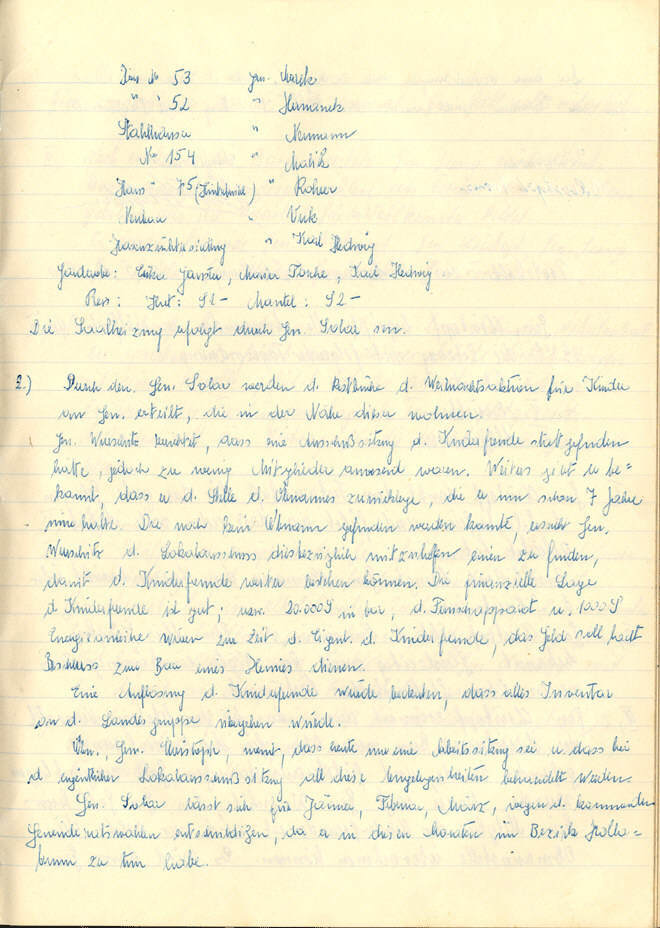 Haus № 53 Gen. Marek
" " 52 " Hermanek
Stahlhäuser " Neumann
№ 154 " Malik
Haus " 75 ( ) " Rohrer
Neubau " Vuk
" Karl Hedwig
Garderobe: Maria, Karl Hedwig
Preis: Hut: S1- Mantel: S2-
Die Saalheizung erfolgt durch Gen. Sokar sen.
2.) Durch den Gen. Sokar werden d. d. Weihnachtsaktion für Kinder
an Gen. erteilt, die in der Nähe dieser wohnen.
Gen. Wurschitz berichtet, dass eine Ausschußsitzung d. Kinderfreunde stattgefunden
hatte, jedoch zu wenig Mitglieder anwesend waren. Weiters gibt er be-
kannt, dass er d. Stelle d. Obmannes zurücklege, die er nun schon 7 Jahre
inne hatte. Da noch kein Obmann gefunden werden konnte, ersucht Gen.
Wurschitz d. Lokalausschuss diesbezüglich mitzuhelfen einen zu finden,
damit d. Kinderfreunde weiter bestehen können. Die finanzielle Lage
d Kinderfreunde ist gut; usw. 20.000S in bar, d. u. 1000S
Energieanleihe wären zur Zeit d. Eigent. d. Kinderfreunde, das Geld soll laut
Beschluss zum Bau eines Heimes dienen.
Eine Auflösung d. Kinderfreunde würde bedeuten, dass alles Inventar
an d. Landesgruppe übergeben würde.
Obm., Gen. Christoph, meint, dass heute nur eine Arbeitssitzung sei u. dass bei
d eigentlichen Lokalausschußsitzung all diese Angelegenheiten behandelt werden.
Gen. Sokar lässt sich für Jänner, Februar, März, wegen d. kommenden
Gemeinderatswahlen entschuldigen, da er in diesen Monaten im Bezirk Holla-
brunn zu tun habe.